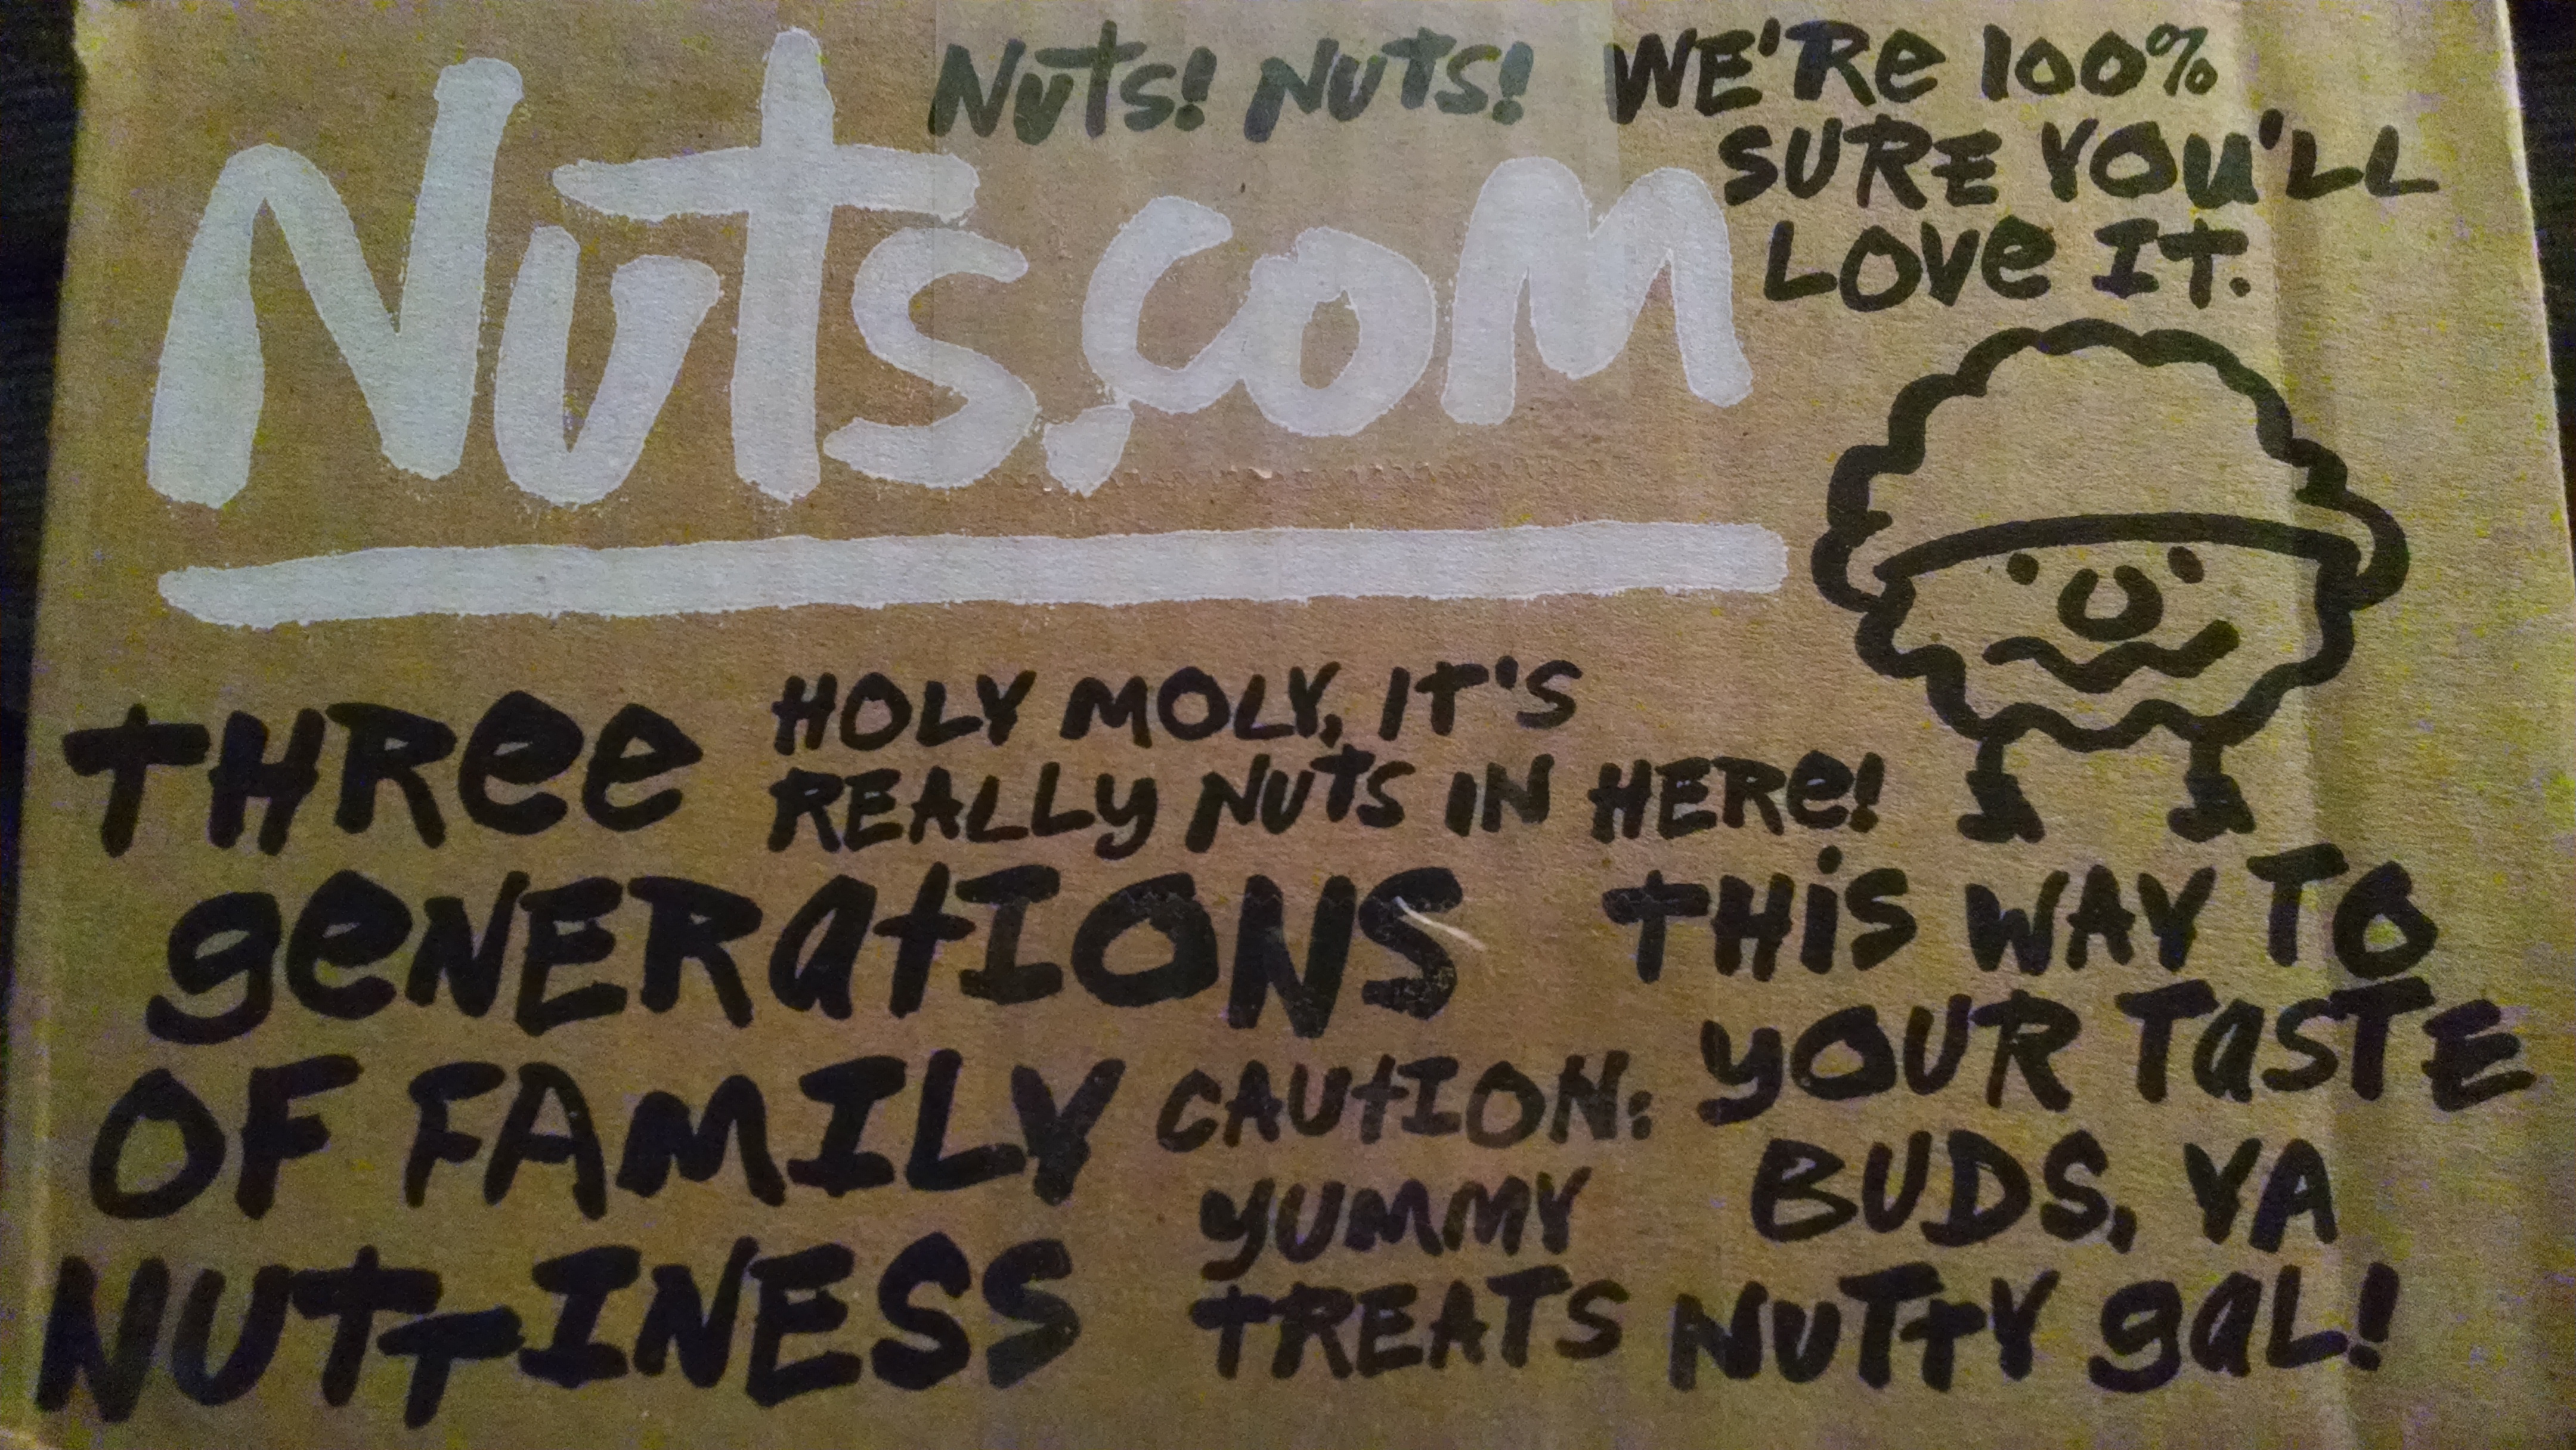 Nuts! Nuts!
WE'Re 100%
SURE YOU'LL
LOVe IT.
Nuts.com
THRee
geNERatIONS
OF FAMILY
NUTTINESS
HOLY MOLY, IT'S
REALLy NUTS IN HERe!
CAUtION:
yUMMY
tREATS
THiS WAY TO
yOUR TaSTE
BUDS, YA
NUTTY gaL!